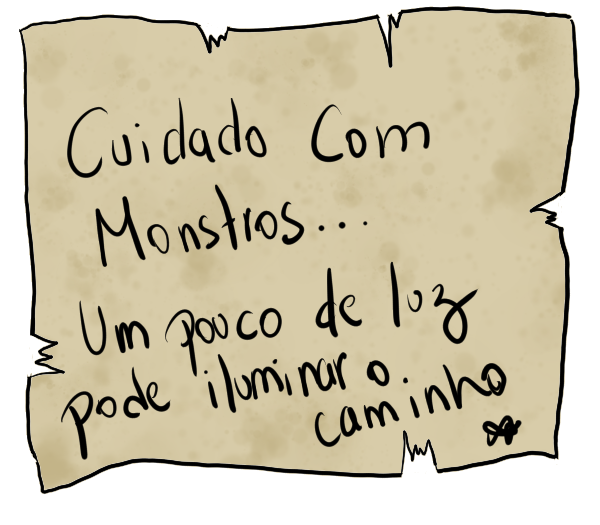 Cuidado Com
Monstros...
Um pouco de luz
pode iluminar o
caminho